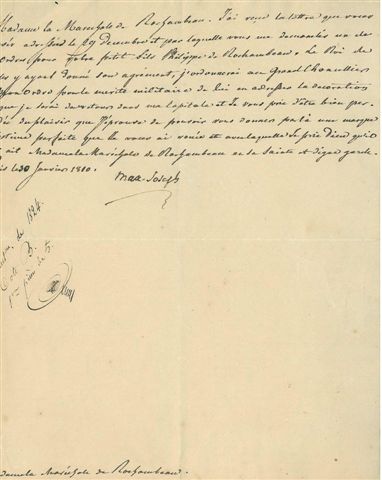 Madame la Maréchale de Rochambeau. J'ai reçu la lettre que vous
adressée le 29 Décembre et par laquelle vous me demandez un de
Ordres pour votre petit fils Philippe de Rochambeau. Le Roi de
y ayant donné son agrément, j'ordonnerai au Grand Chancellier
Ordre pour le mérite militaire de lui en adresser la décoration
que je serai de retour dans ma capitale et je vous prie d'être bien per
du plaisir que j'éprouve de pouvoir vous donner par là une marque
estime parfaite que je vous ai vouée et avec laquelle je prie Dieu qu'il
ait Madame la Maréchale de Rochambeau en sa Sainte et digne garde.
30 Janvier 1810.
Max-Joseph
de 1824.
Cote B.
1ere pièce de 5.
dame la Maréchale de Rochambeau.